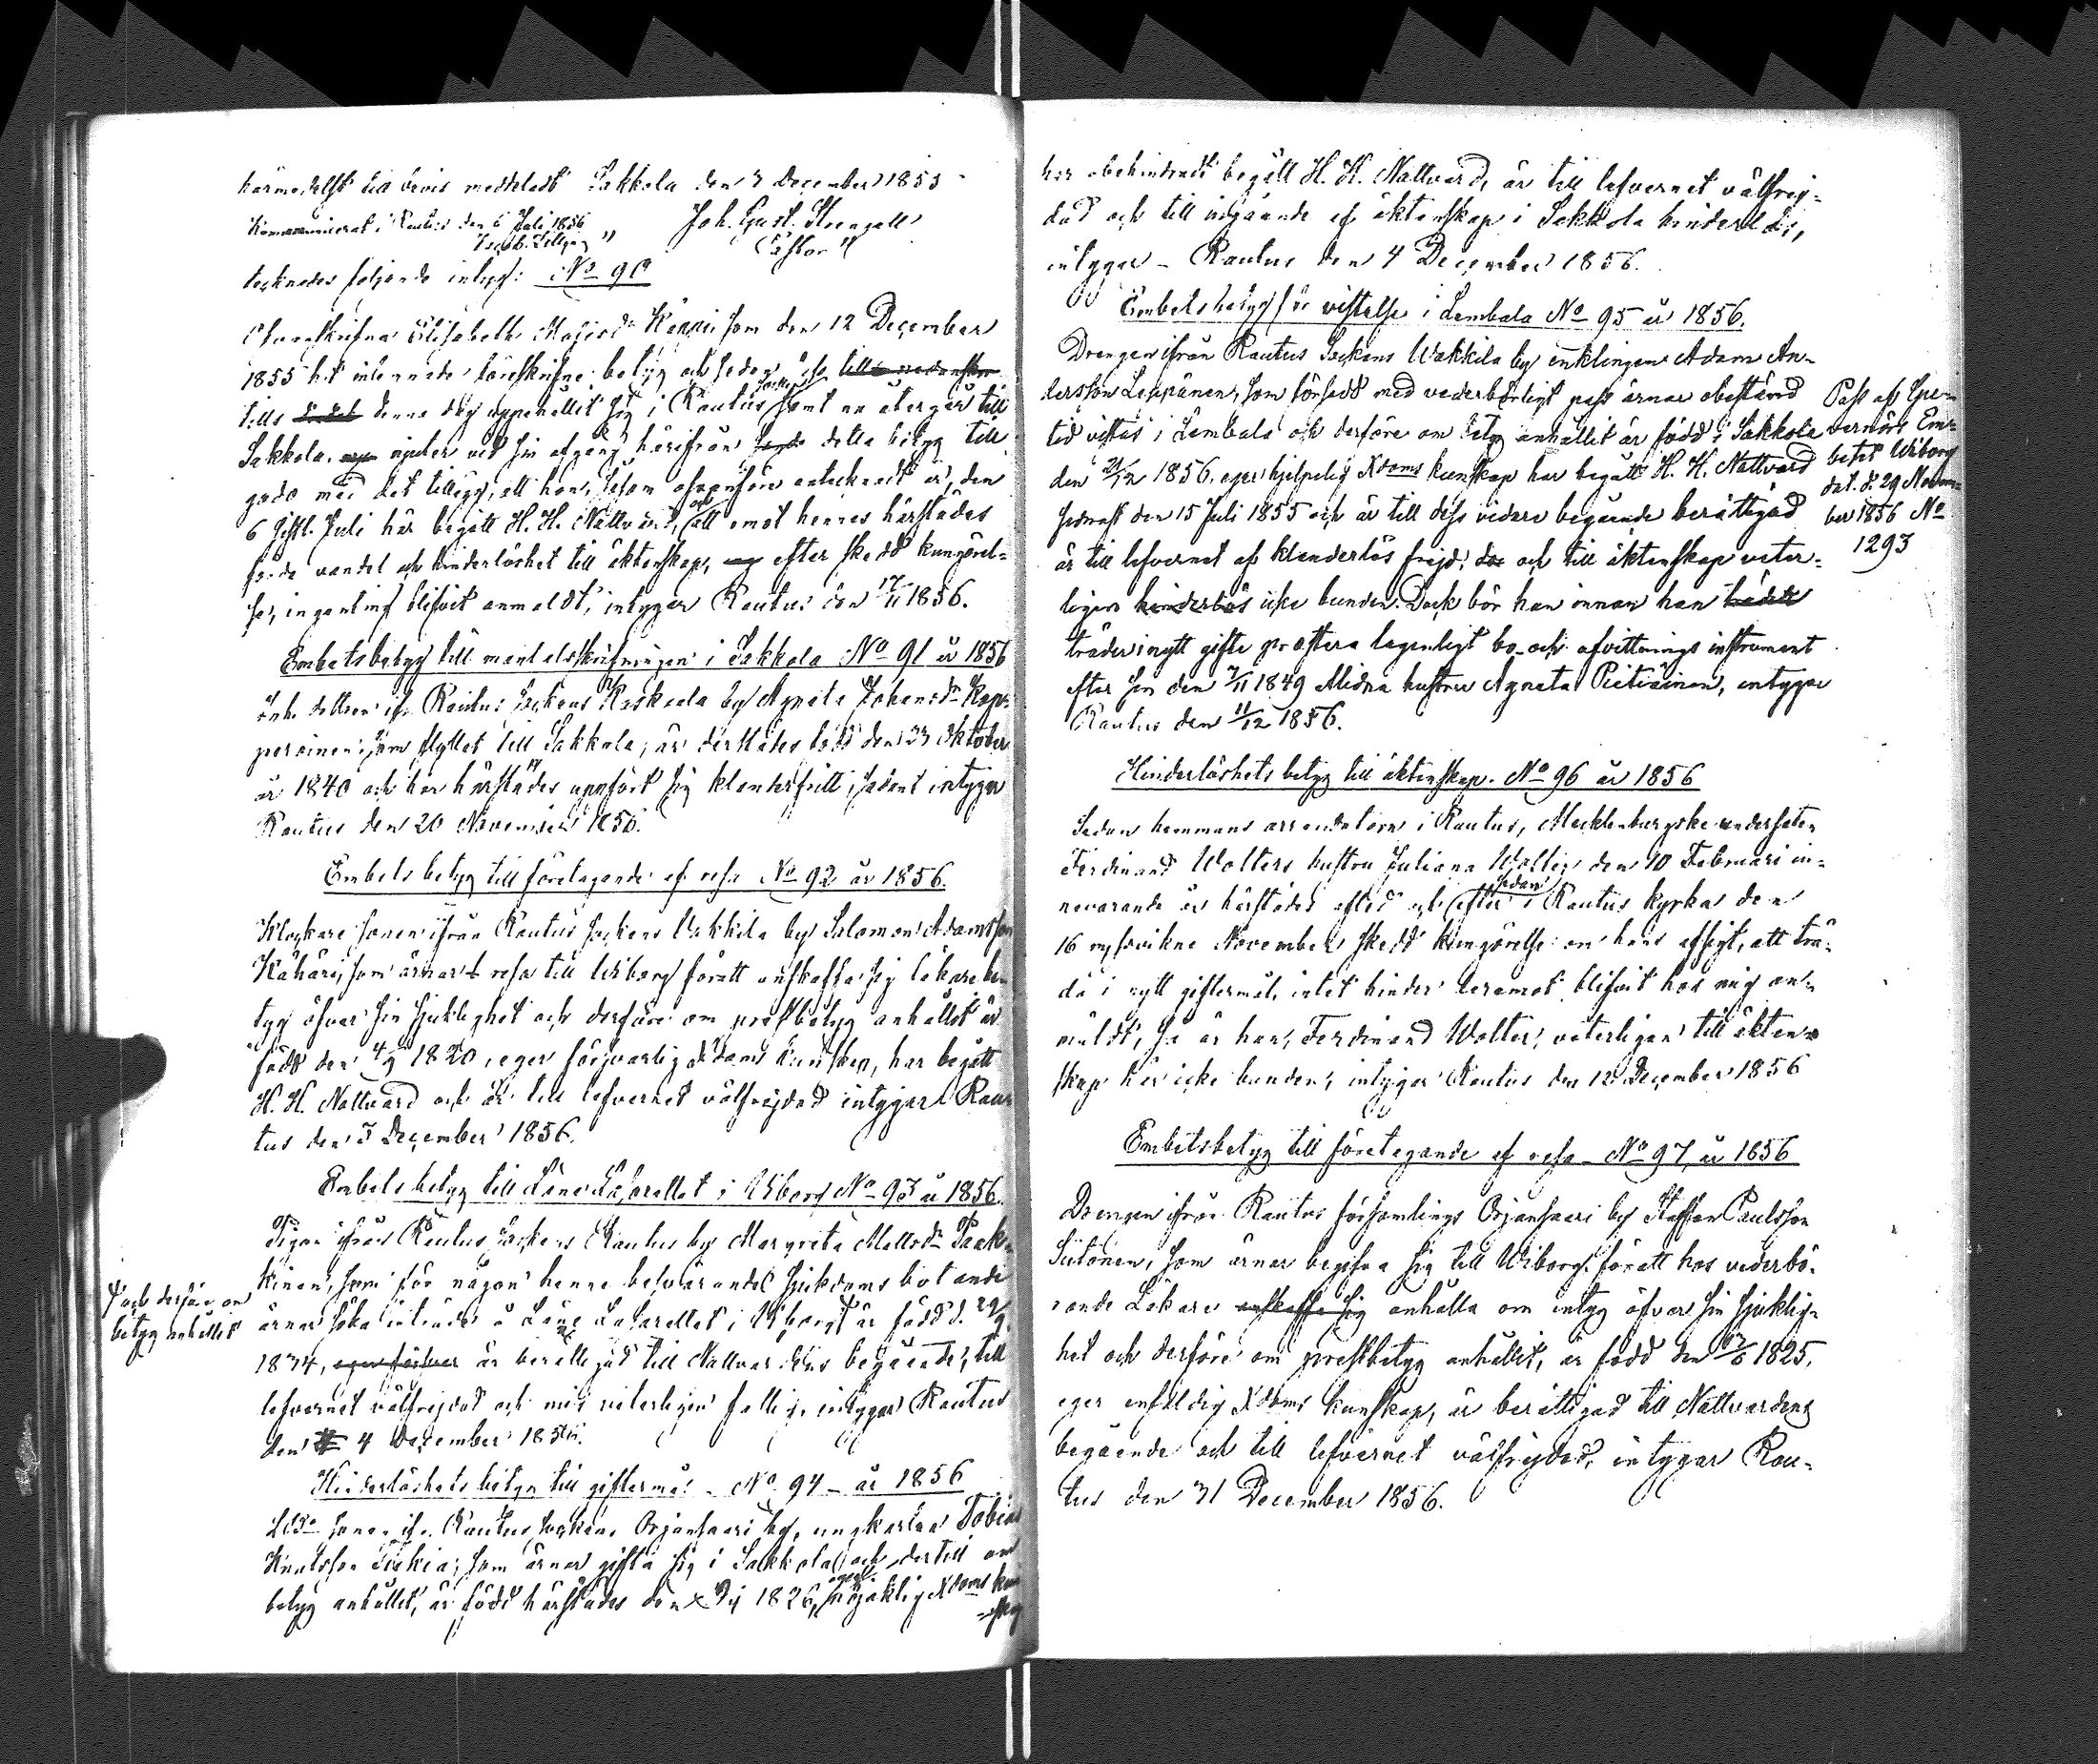 härmedelst till bevis meddeladt Sakkola den 3 December 1855
Kommunicerat i Rautus den 6 Juli 1856 Joh. Gust. Strengell
Pastor
tecknades följande intyg: No 90
Elisabeth Majsdr Keppi som den 12 December
1855 hit inlemnade föreskrifne betyg och sedan dess till nedanskr
tills denna dag uppehållit sig i Rautus socken samt nu återgår till
Sakkola, njuter vid sin afgång härifrån detta betyg till
godo med det tillägg, att hon, såsom ofvanföre antecknadt är, den
6 sistl. Juli här begått H. H. Nattvard, och att emot hennes härstädes
förde vandel och hinderlöshet till äktenskap, efter skedd kungörel-
se, ingenting blifvit anmäldt, intygar Rautus den 17/11 1856.
Embetsbetyg till mantalsskrifningen i Sakkola No 91 år 1856
Inh. dottren ifr. Rautus Sockens Raskala by Agneta Johansdr Kop-
peroinen som flyttet till Sakkola, är derstädes född den 23 Oktober
år 1840 och har härstädes uppfört sig klanderfritt; sådant intygar
Rautus den 20 November 1856.
Embets betyg till företagande af resa No 92 år 1856.
Klockare sonen ifrån Rautus sockens Wakkila by Salomon Adamsson
Kähäri, som ärnar resa till Wiborg föratt anskaffa sig läkare be-
tyg öfver sin sjuklighet och derföre om prestbetyg anhållit är
född den 4/9 1820, eger försvarlig Xdoms kunskap, har begått
H. H. Nattvard och är till lefvernet välfrejdad intygar Rau-
tus den 3 December 1856.
Embets betyg till Läns Lasarettet i Wiborg No 93 år 1856.
Pigan ifrån Rautus Sockens Rautus by Margreta Mattsdr Paak-
kinen, som för någon henne besvärande sjukdoms botande
och derföre om
betyg anhållit
ärnar söka inträde å Läns Lasarettet i Wiborg är född d. 29/9
1834, eger försvar är berättigad till Nattvardens begående, till
lefvernet välfrejdad och mig veterligen fattig, intygar Rautus
den 4 December 1856.
Hinderlöshets betyg till giftermål - No 94 - år 1856
sonen ifr. Rautus sockens Orjansaari by, ungkarlen Tobias
Knutsson Tuskia, som ärnar gifta sig i Sakkola och dertill om
betyg anhållit, är född härstädes den 1826, eger nöjaktig Xdoms kun-
skap
har obehindradt begått H. H. Nattvard, är till lefvernet välfrej-
dad och till ingående af äktenskap i Sakkola hinderlös,
intygar - Rautus den 4 December 1856.
Embetsbetyg för vistelse i Lembala No 95 år 1856.
Drengen ifrån Rautus Sockens Wakkila by enklingen Adam An-
dersson Leppänen, som försedd med vederbörligt pass ärnar obestämd
tid vistas i Lembala och derföre om betyg anhållit är född i Sakkola
den 21/12 1856, eger hjelpelig Xdoms kunskap har begått H. H. Nattvard
sednast den 15 Juli 1855 och är till dess vidare begående berättigad
är till lefvernet af klanderlös frejd, och till äktenskap veter-
ligen hinderlös icke bunden. Dock bör han innan han träder
träder i nytt gifte præstera lagenligt bo- och afvittrings instrument
efter sin den 7/11 1849 aflidna hustru Agneta Pietiäinen, intygar
Rautus den 11/12 1856.
Pass af Gou-
vernörs Em-
betet Wiborg
dat. d. 29 Novem-
ber 1856 No
1293
Hinderlöshets betyg till äktenskap. No 96 år 1856
Sedan hemmans arrendatorn i Rautus, Mecklenburgske undersåten
Ferdinand Wolters hustru Juliana den 10 Februari in-
nevarande år härstädes aflidit och sedan efter i Rautus kyrka den
16 nyssvikne November skedd kungörelse om hans afsigt, att trä-
da i nytt giftermål, intet hinder deremot blifvit hos mig an-
mäldt, så är han, Ferdinand Wolter, veterligen till äkten-
skap här icke bunden, intygar Rautus den 12 December 1856
Embetsbetyg till företagande af resa - No 97 år 1856
Drengen ifrån Rautus församlings Orjansaari by Staffan Paulsson
Siitonen, som ärnar begifva sig till Wiborg föratt hos vederbö-
rande Läkare anskaffa sig anhålla om intyg öfver sin sjuklig-
het och derföre om prestbetyg anhållit, är född den 1825,
eger enfaldig Xdoms kunskap, är berättigad till Nattvardens
begående och till lefvernet välfrejdad, intygar Rau-
tus den 31 December 1856.